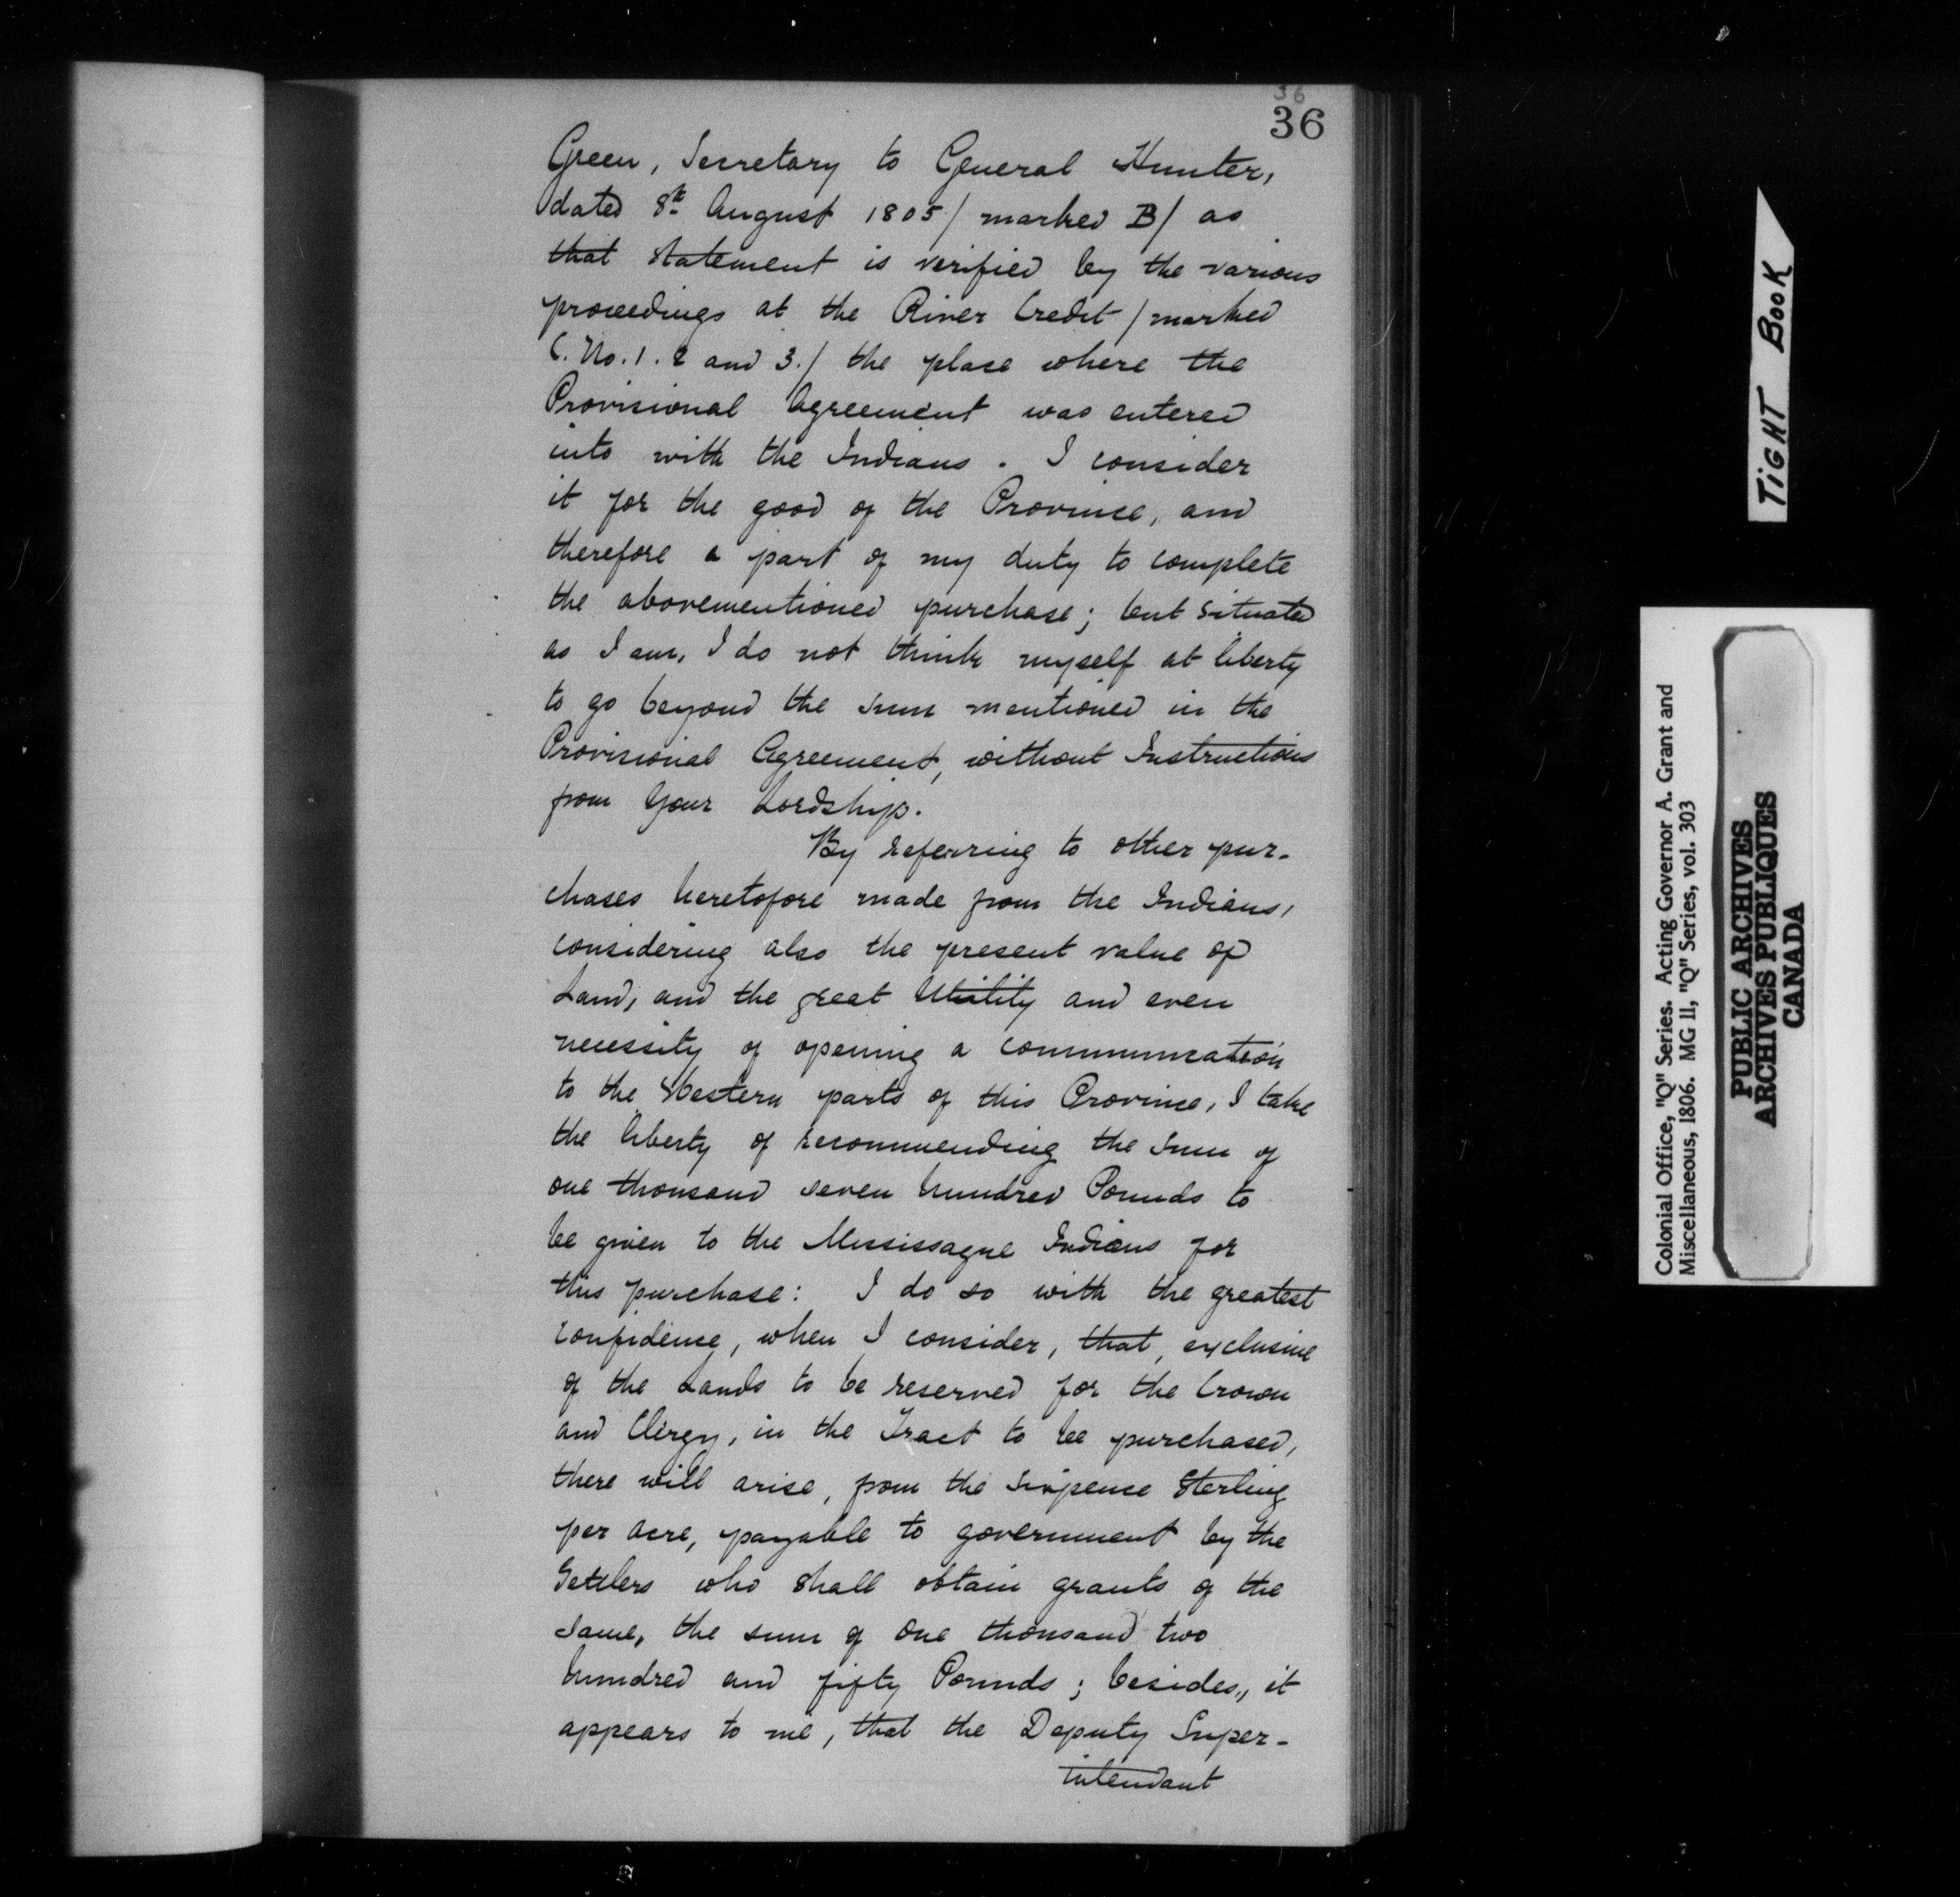 36
36
Green, Secretary to General Hunter,
dated 8th August 1805/ marked B/ as
that statement is verified by the various
proceedings at the River Credit / marked
C. No. 1. 2 and 3./ the place where the
Provisional Agreement was entered
into with the Indians. I consider
it for the good of the Province, and
therefore a part of my duty to complete
the abovementioned purchase; but situated
as I am, I do not think myself at liberty
to go beyond the sum mentioned in the
Provisional Agreement, without Instructions
from Your Lordship.
By referring to other pur-
chases heretofore made from the Indians,
considering also the present value of
Land, and the great Utility and even
necessity of opening a communication
to the Western parts of this Province, I take
the liberty of recommending the sum of
one thousand seven hundred Pounds to
be given to the Mississague Indians for
this purchase: I do so with the greatest
confidence, when I consider, that, exclusive
of the Lands to be reserved for the Crown
and Clergy, in the Tract to be purchased,
there will arise, from the sixpence Sterling
per acre, payable to government by the
Settlers who shall obtain grants of the
same, the sum of one thousand two
hundred and fifty Pounds; besides,, it
appears to me, that the Deputy Super-
intendant
TIGHT BOOK
Colonial Office, "Q" Series. Acting Governor A. Grant and
Miscellaneous, 1806. MG 11, "Q" Series, vol. 303
PUBLIC ARCHIVES
ARCHIVES PUBLIQUES
CANADA